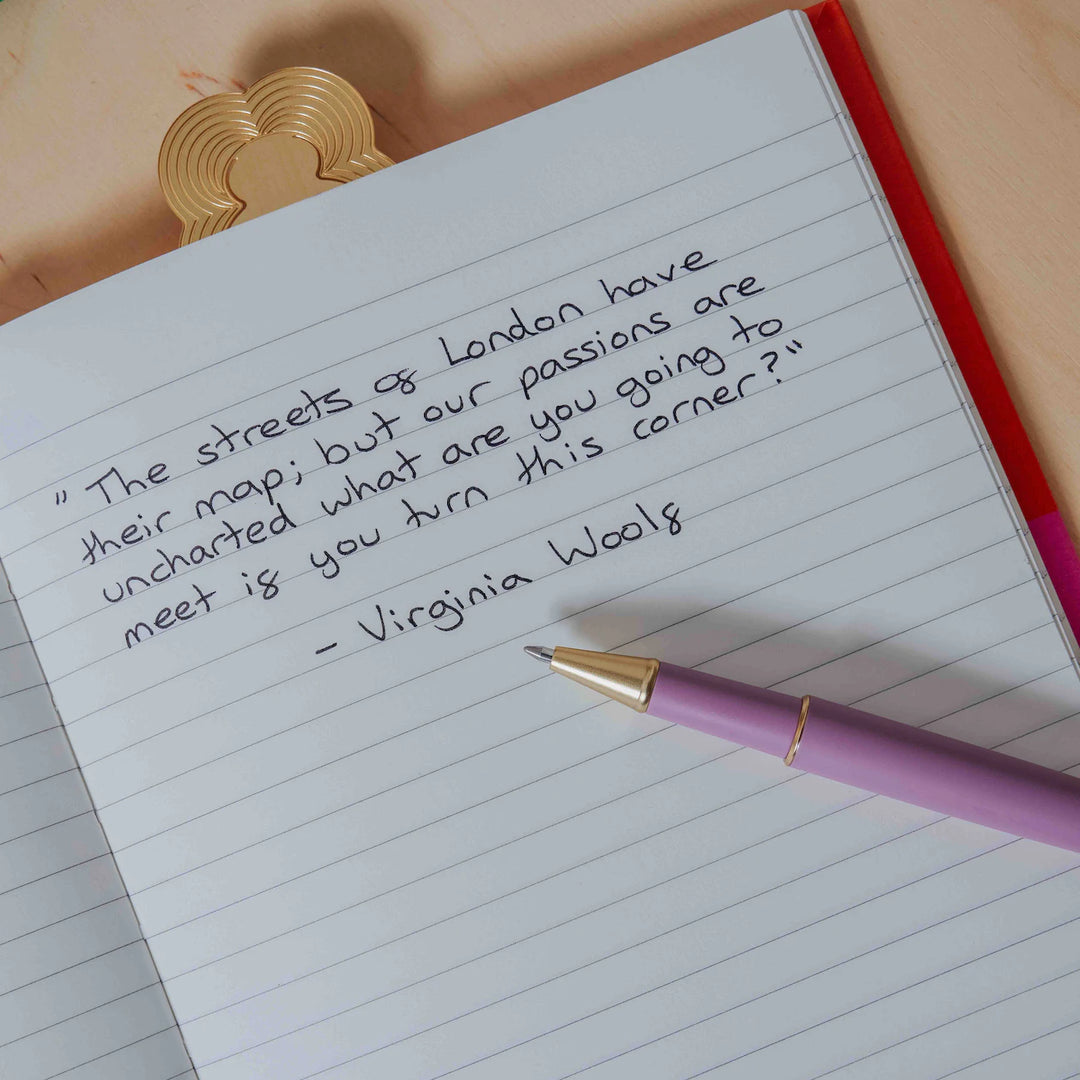 "The streets of London have
their map; but our passions are
uncharted what are you going to
meet if you turn this corner?"
- Virginia Woolf